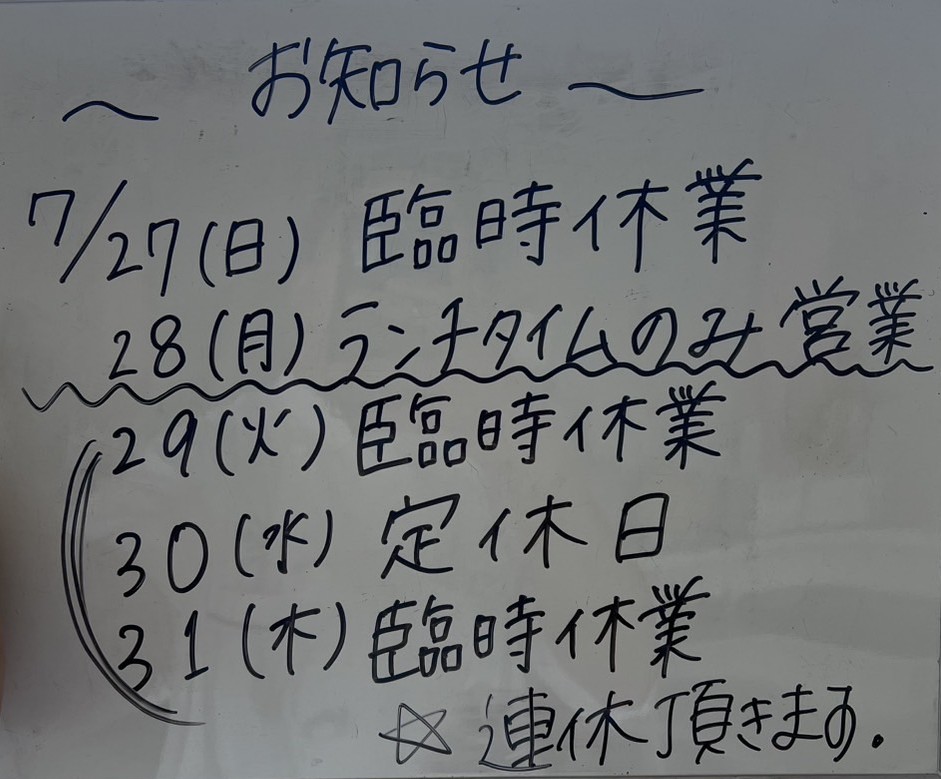 ～ お知らせ ～
7/27(日) 臨時休業
28(月) ランチタイムのみ営業
29(火) 臨時休業
30(水) 定休日
31(木) 臨時休業
☆ 連休頂きます.